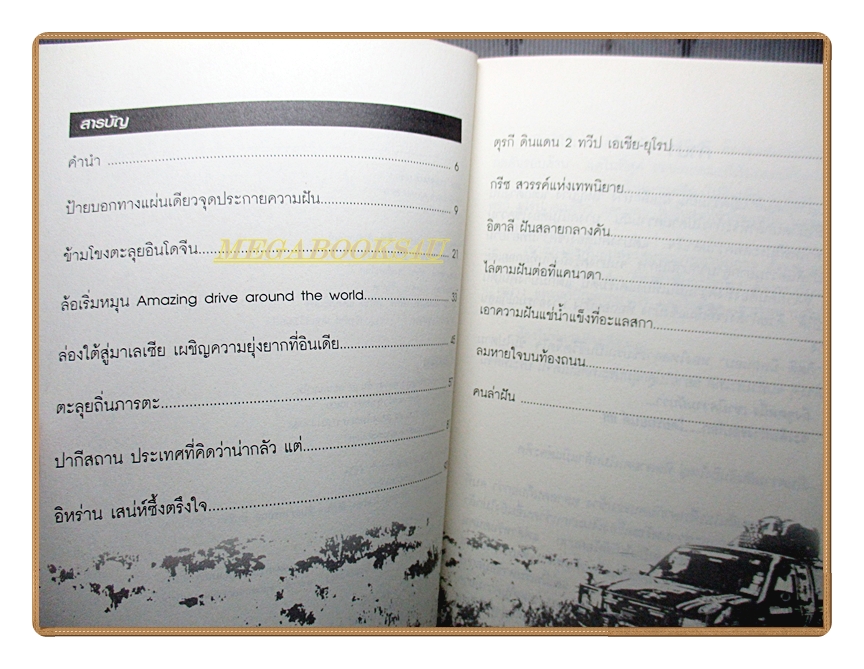 สารบัญ
คำนำ ........ 6
ป้ายบอกทางแผ่นเดียวจุดประกายความฝัน........ 9
ข้ามโขงตะลุยอินโดจีน........ 21
MEGABOOKS4U
ล้อเริ่มหมุน Amazing drive around the world........ 33
ล่องใต้สู่มาเลเซีย เผชิญความยุ่งยากที่อินเดีย........ 45
ตะลุยถิ่นภารตะ........ 57
ปากีสถาน ประเทศที่คิดว่าน่ากลัว แต่........
อิหร่าน เสน่ห์ซึ้งตรึงใจ........
ตุรกี ดินแดน 2 ทวีป เอเชีย-ยุโรป........
กรีซ สวรรค์แห่งเทพนิยาย........
อิตาลี ฝันสลายกลางคัน........
ไล่ตามฝันต่อที่แคนาดา........
เอาความฝันแช่น้ำแข็งที่อะแลสกา........
ลมหายใจบนท้องถนน........
คนล่าฝัน ........